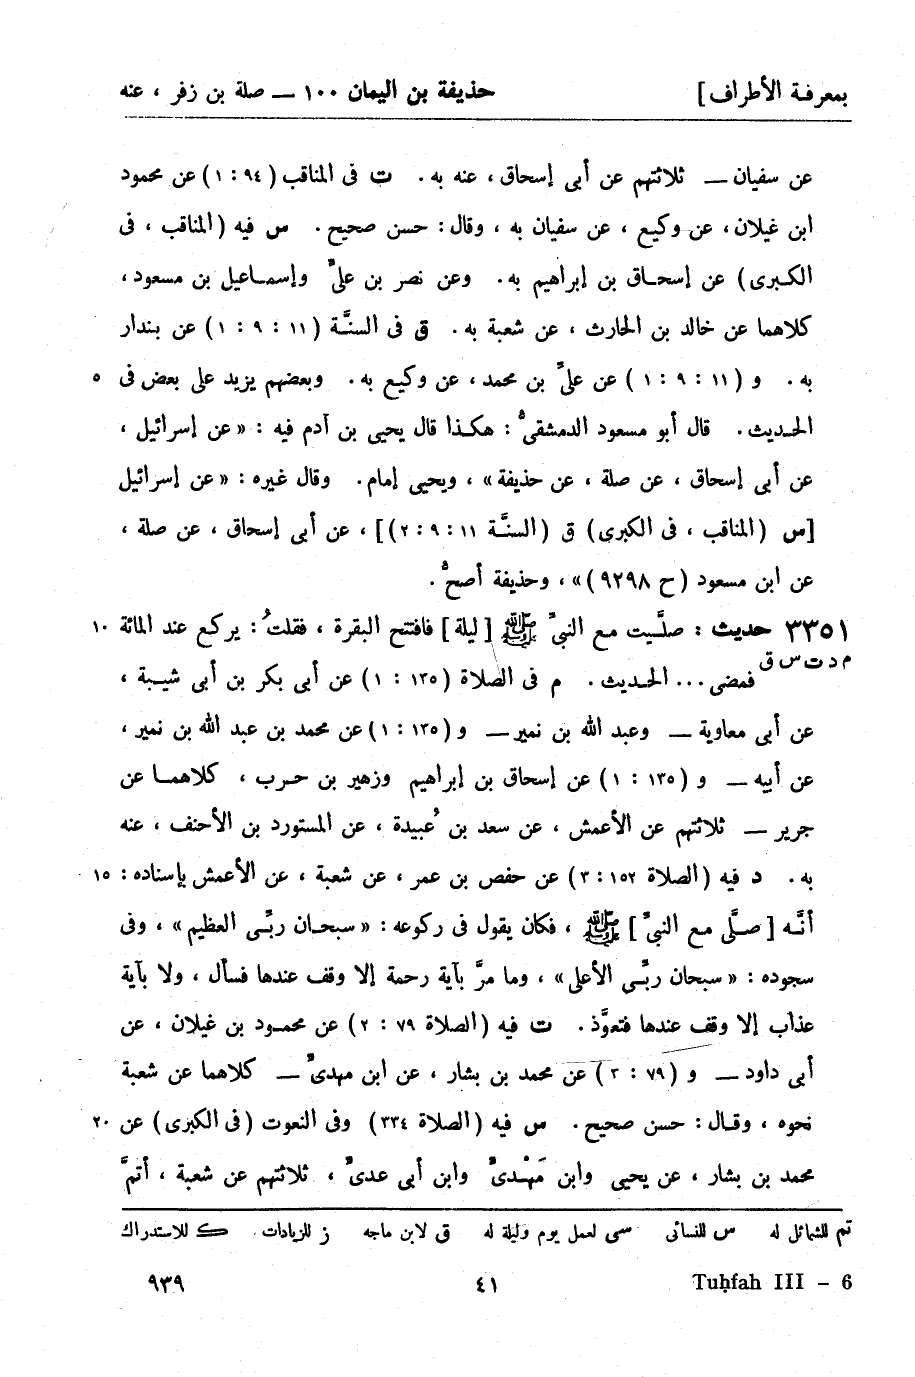 بمعرفة الأطراف] حذيفة بن اليمان ١٠٠ — صلة بن زفر ، عنه
عن سفيان — ثلاثتهم عن أبى إسحاق ، عنه به . ت فى المناقب (٩٤ : ١) عن محمود
ابن غيلان ، عن وكيع ، عن سفيان به ، وقال : حسن صحيح . س فيه (المناقب ، فى
الكبرى) عن إسحاق بن إبراهيم به . وعن نصر بن علىّ وإسماعيل بن مسعود ،
كلاهما عن خالد بن الحارث ، عن شعبة به . ق فى السنَّة (١١ : ٩ : ١) عن بندار
به . و (١١ : ٩ : ١) عن علىّ بن محمد ، عن وكيع به . وبعضهم يزيد على بعض فى ٥
الحديث . قال أبو مسعود الدمشقىُّ : هكذا قال يحيى بن آدم فيه : « عن إسرائيل ،
عن أبى إسحاق ، عن صلة ، عن حذيفة » ، ويحيى إمام . وقال غيره : « عن إسرائيل
[س (المناقب ، فى الكبرى) ق (السنَّة ١١ : ٩ : ٢)] ، عن أبى إسحاق ، عن صلة ،
عن ابن مسعود (ح ٩٢٩٨) » ، وحذيفة أصحُّ .
٣٣٥١ حديث : صلَّيت مع النبىّ ﷺ [ليلة] فافتتح البقرة ، فقلتُ : يركع عند المائة ١٠
م د ت س ق
فمضى ... الحديث . م فى الصلاة (١٣٥ : ١) عن أبى بكر بن أبى شيبة ،
عن أبى معاوية — وعبد الله بن نمير — و (١٣٥ : ١) عن محمد بن عبد الله بن نمير ،
عن أبيه — و (١٣٥ : ١) عن إسحاق بن إبراهيم وزهير بن حرب ، كلاهما عن
جرير — ثلاثتهم عن الأعمش ، عن سعد بن عُبيدة ، عن المستورد بن الأحنف ، عنه
به . د فيه (الصلاة ١٥٢ : ٣) عن حفص بن عمر ، عن شعبة ، عن الأعمش بإسناده : ١٥
أنَّه [صلَّى مع النبىّ] ﷺ ، فكان يقول فى ركوعه : « سبحان ربِّى العظيم » ، وفى
سجوده : « سبحان ربِّى الأعلى » ، وما مرَّ بآية رحمة إلا وقف عندها فسأل ، ولا بآية
عذاب إلا وقف عندها فتعوَّذ . ت فيه (الصلاة ٧٩ : ٢) عن محمود بن غيلان ، عن
أبى داود — و (٧٩ : ٣) عن محمد بن بشار ، عن ابن مهدىّ — كلاهما عن شعبة
نحوه ، وقال : حسن صحيح . س فيه (الصلاة ٣٣٤) وفى النعوت (فى الكبرى) عن ٢٠
محمد بن بشار ، عن يحيى وابن مَهْدىّ وابن أبى عدىّ ، ثلاثتهم عن شعبة ، أتمَّ
تم للشمائل له س للنسائى سى لعمل يوم وليلة له ق لابن ماجه ز للزيادات ك للاستدراك
Tuḥfah III – 6 ٤١ ٩٣٩